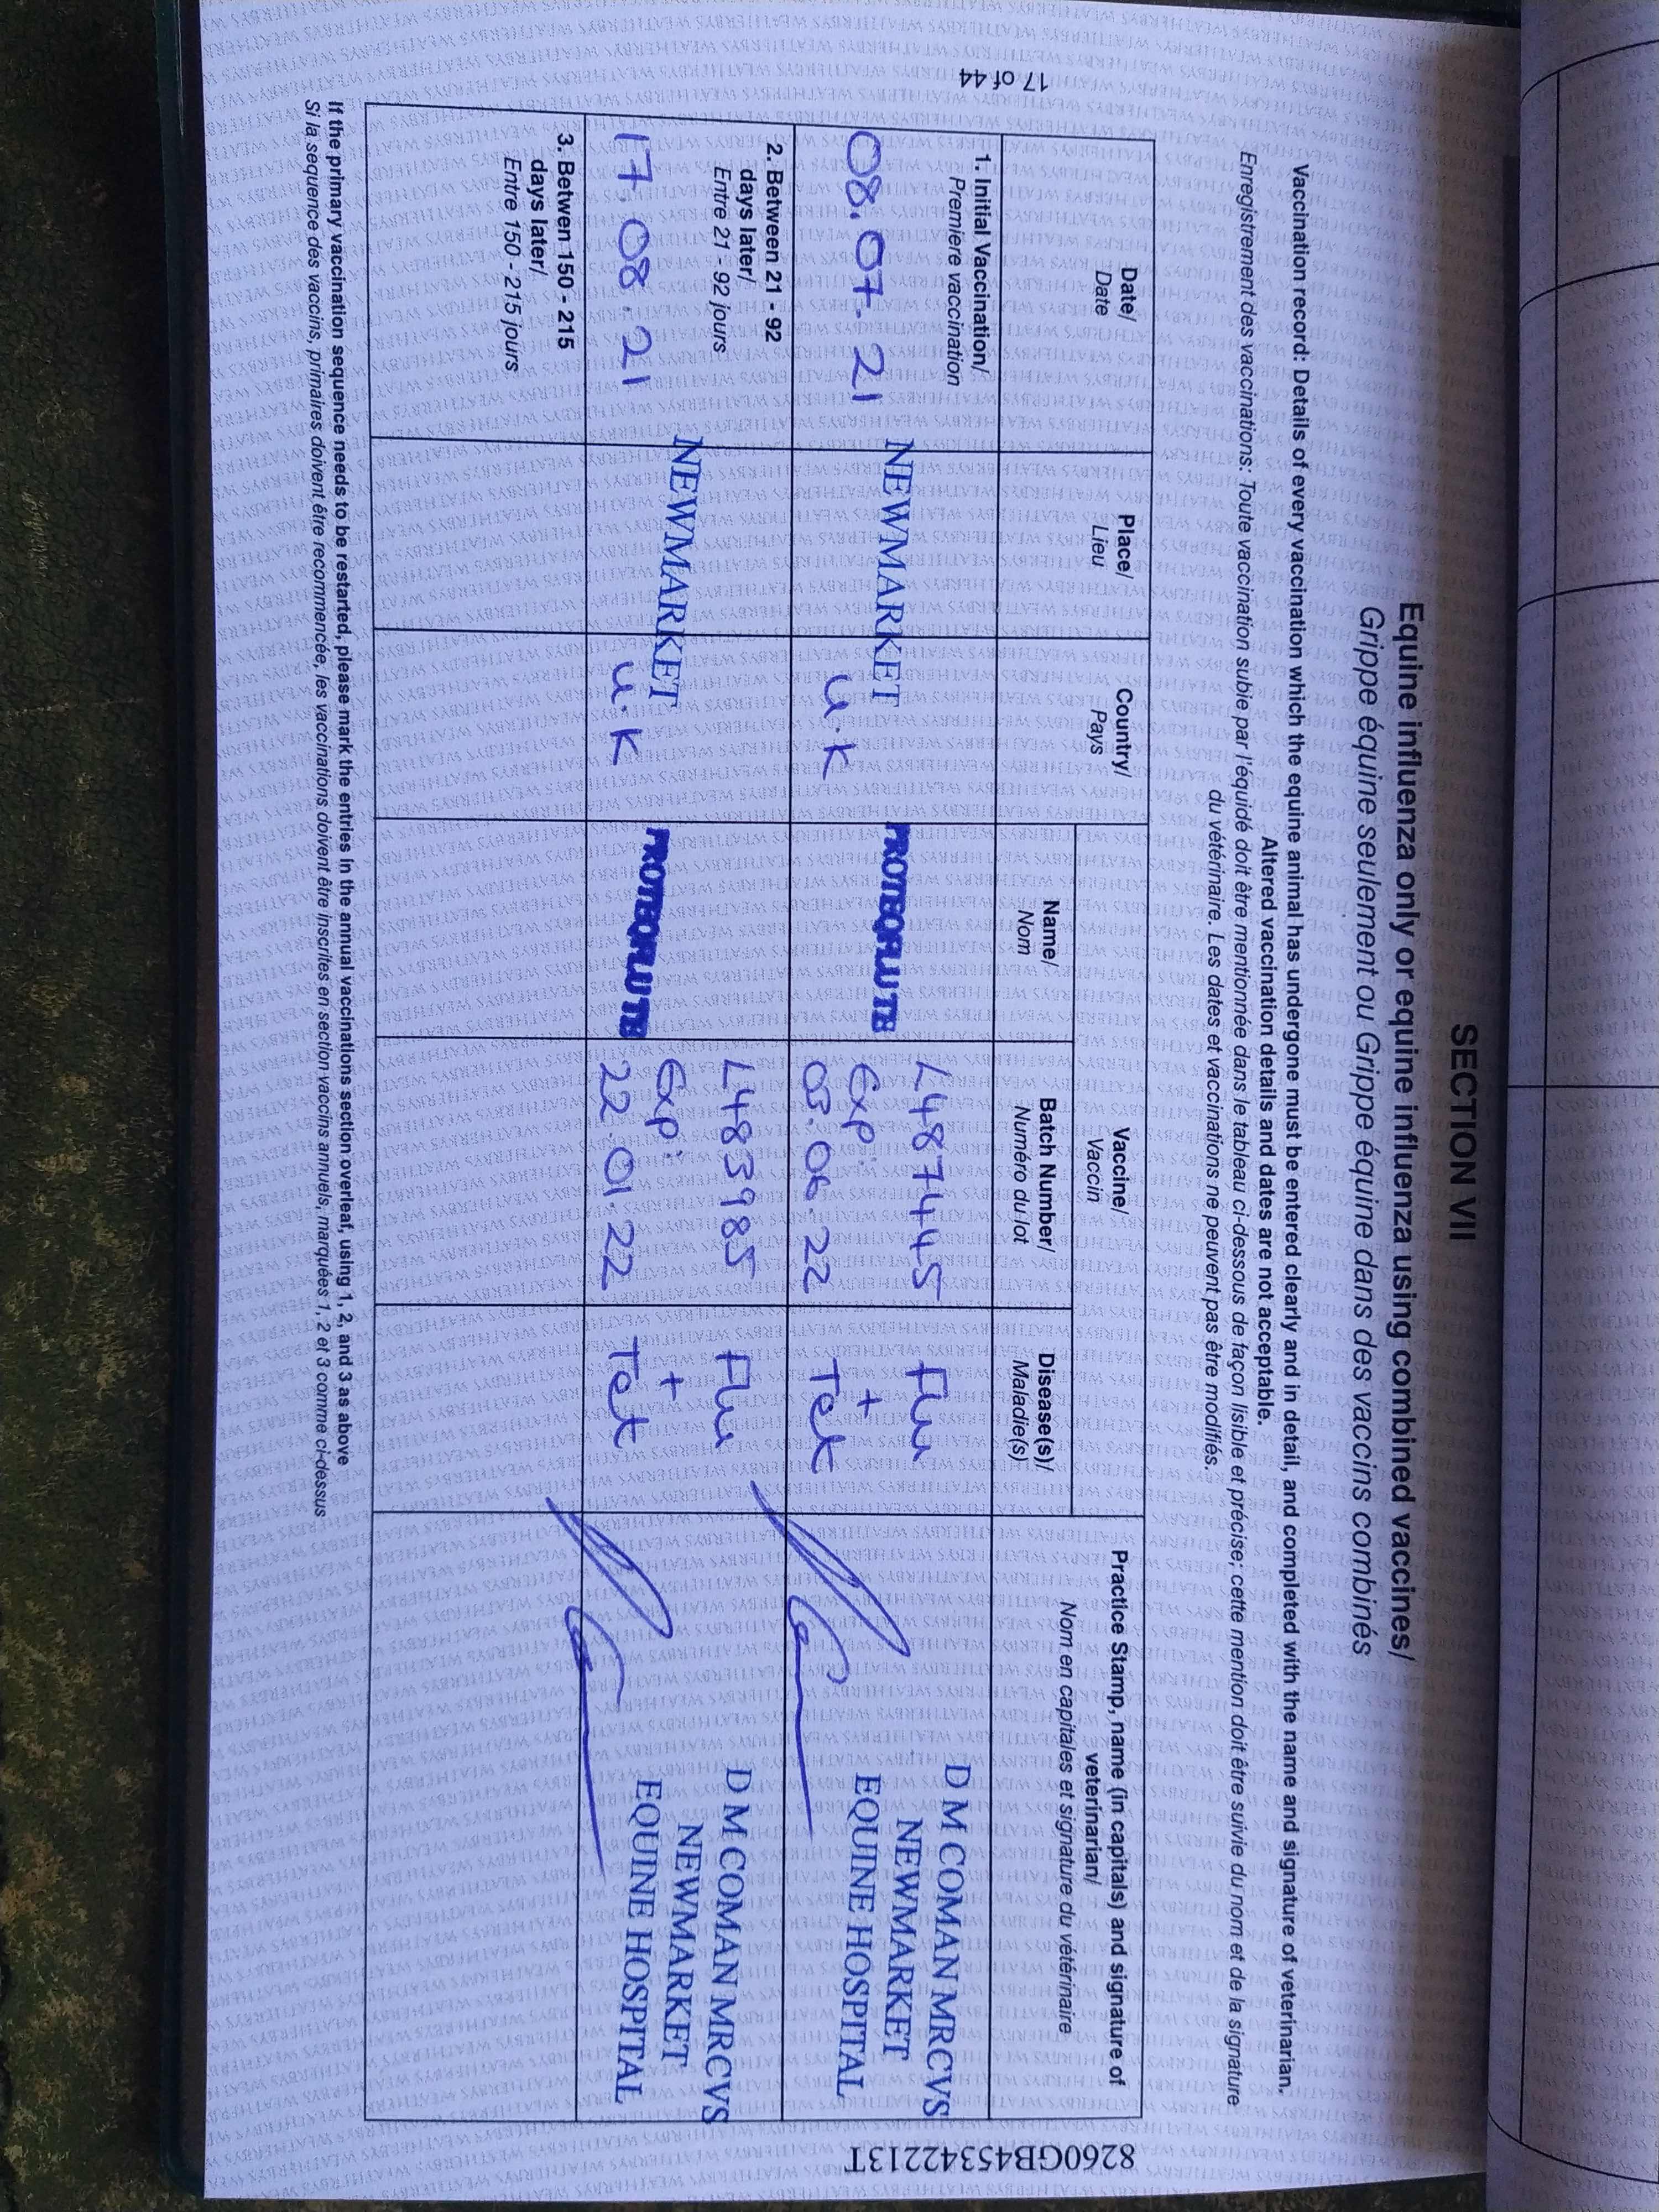 SECTION VII
Equine influenza only or equine influenza using combined vaccines/
Grippe équine seulement ou Grippe équine dans des vaccins combinés
Vaccination record: Details of every vaccination which the equine animal has undergone must be entered clearly and in detail, and completed with the name and signature of veterinarian.
Altered vaccination details and dates are not acceptable.
Enregistrement des vaccinations: Toute vaccination subie par l'équidé doit être mentionnée dans le tableau ci-dessous de façon lisible et précise; cette mention doit être suivie du nom et de la signature
du vétérinaire. Les dates et vaccinations ne peuvent pas être modifiés.
Date/
Date
Place/
Lieu
Country/
Pays
Vaccine/
Vaccin
Name/
Nom
Batch Number/
Numéro du lot
Disease(s)/
Maladie(s)
Practice Stamp, name (in capitals) and signature of
veterinarian/
Nom en capitales et signature du vétérinaire
1. Initial Vaccination/
Premiere vaccination
08.07.21
NEWMARKET
U.K
PROTEQFLU TE
L487445
Exp:
03.06.22
Flu
+
Tet
D M COMAN MRCVS
NEWMARKET
EQUINE HOSPITAL
2. Between 21 - 92
days later/
Entre 21 - 92 jours
17.08.21
NEWMARKET
U.K
PROTEQFLU TE
L483985
Exp:
22.01.22
Flu
+
Tet
D M COMAN MRCVS
NEWMARKET
EQUINE HOSPITAL
3. Betwen 150 - 215
days later/
Entre 150 - 215 jours
If the primary vaccination sequence needs to be restarted, please mark the entries in the annual vaccinations section overleaf, using 1, 2, and 3 as above
Si la sequence des vaccins, primaires doivent être recommencée, les vaccinations doivent être inscrites en section vaccins annuels, marquées 1, 2 et 3 comme ci-dessus
17 of 44
8260GB45342213T